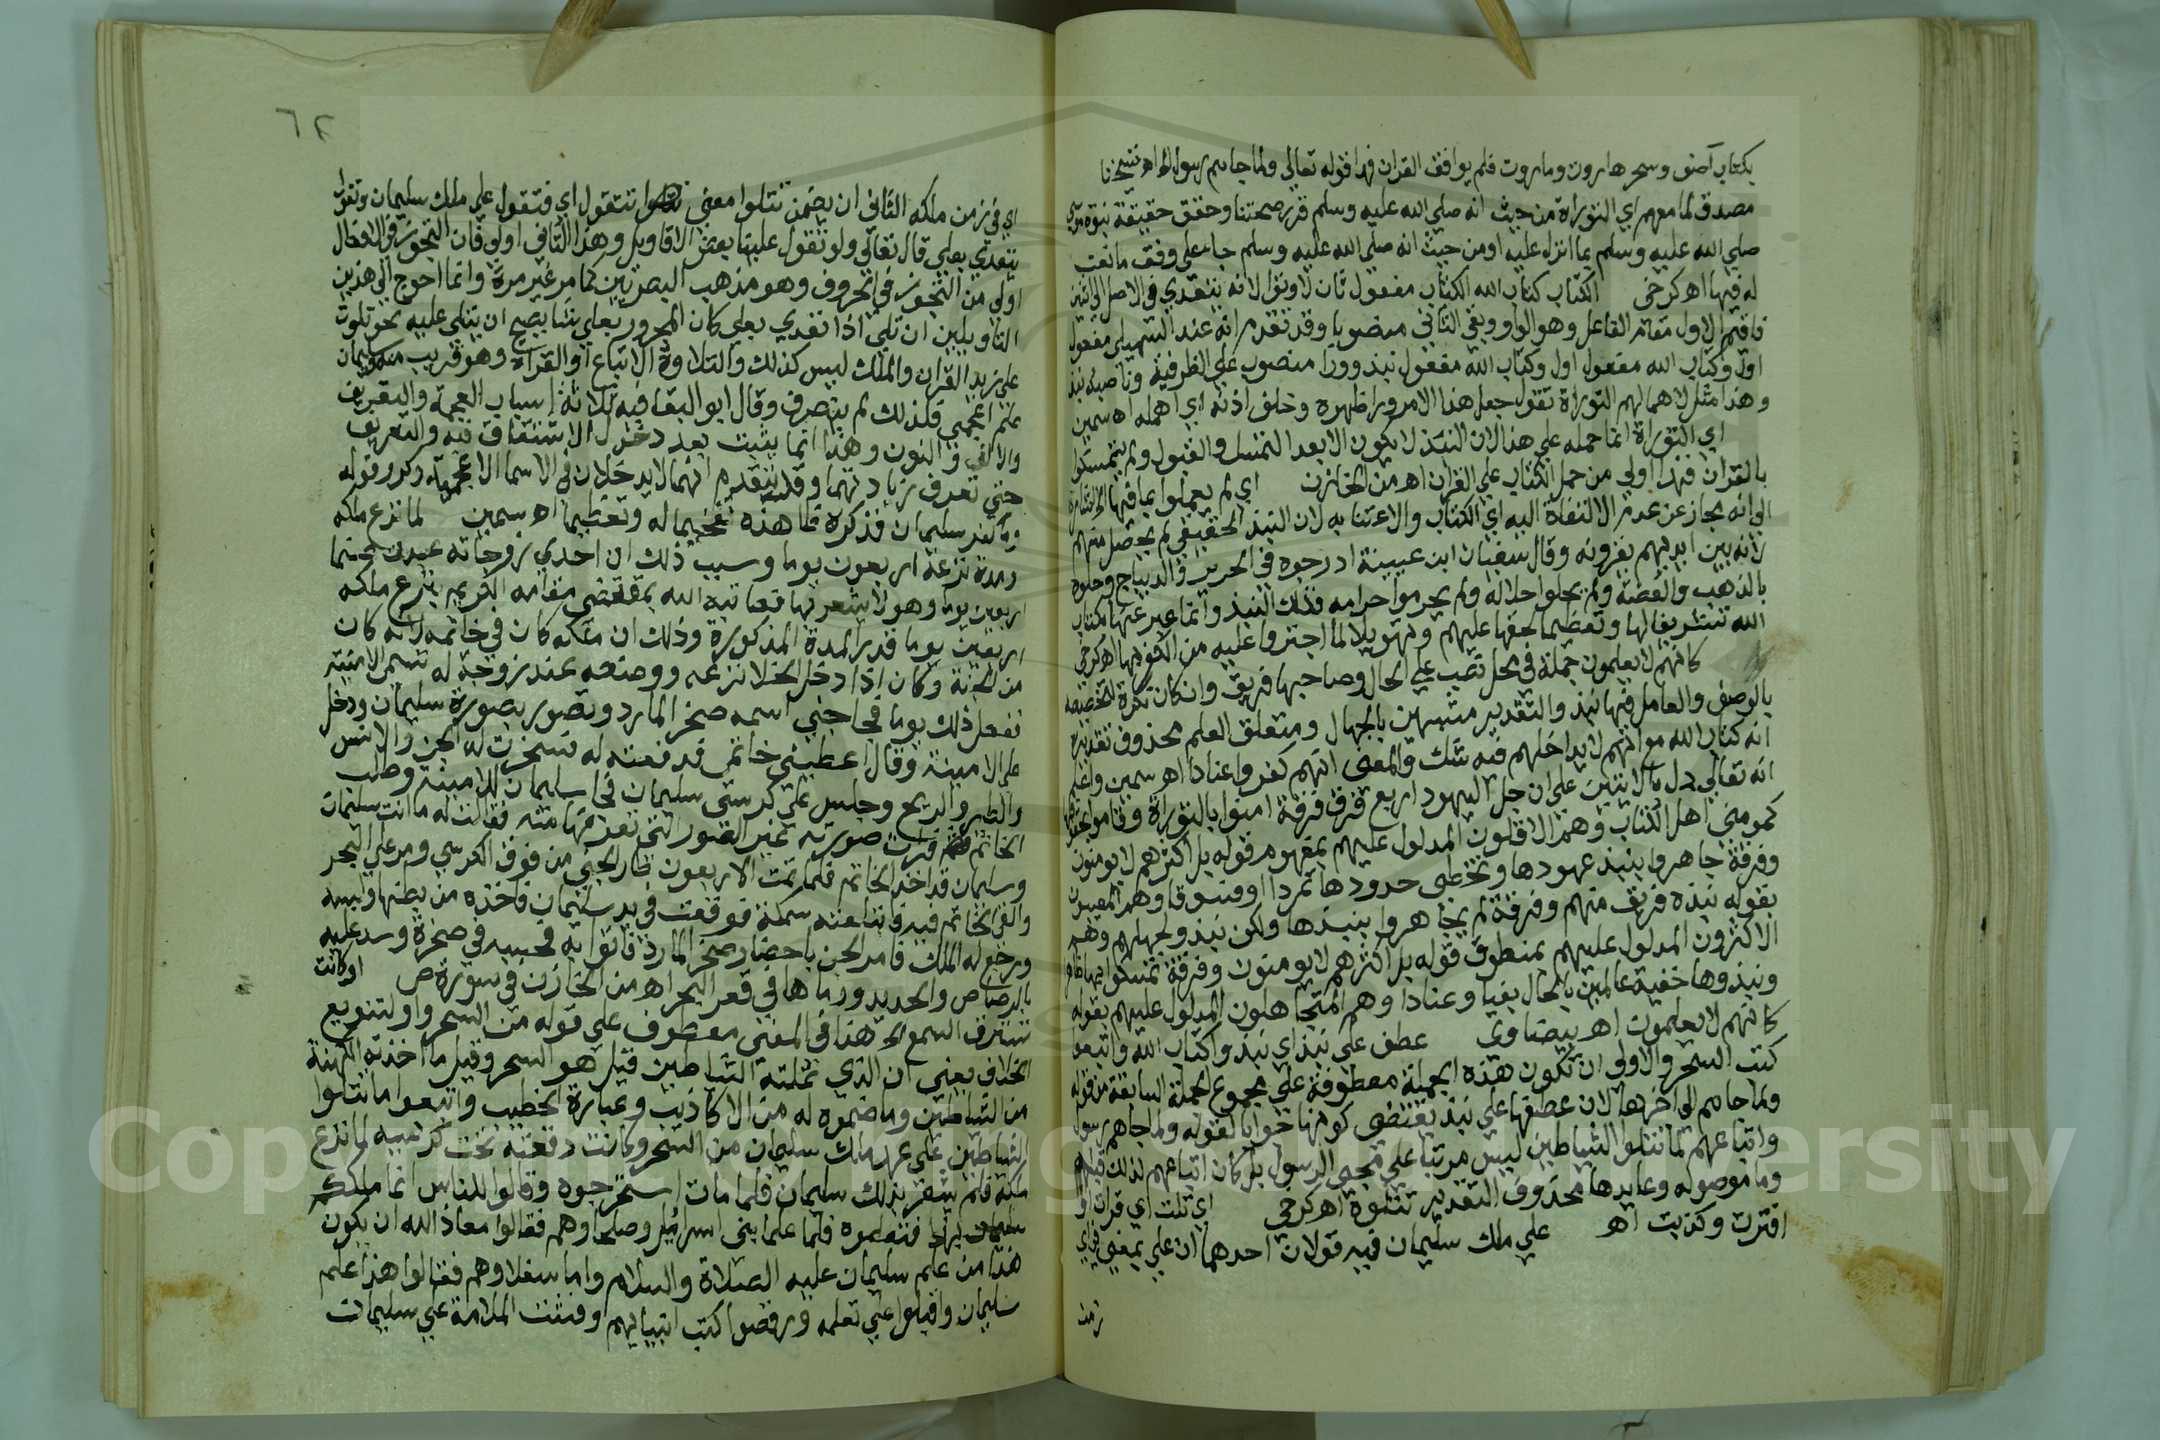 بكتاب آصف وسحر هاروت وماروت فلم يوافق القران فهذا قوله تعالى ولما جاهم رسول الله اه شيخنا
مصدق لما معهم اي التوراة من حيث انه صلي الله عليه وسلم قرر صحتها وحقق حقيقة نبوة موسى
صلي الله عليه وسلم بما انزل عليه او من حيث انه صلي الله عليه وسلم جا علي وفق ما نعت
له فيها اه كرخي الكتاب كتاب الله الكتاب مفعول ثان لاوتوا لانه يتعدي في الاصل الي اثنين
فاقيم الاول مقام الفاعل وهو الواو وبقي الثاني منصوبا وقد تقدم انه عند السهيلي مفعول
اول وكتاب الله مفعول اول وكتاب الله مفعول نبذ وورا منصوب علي الظرفية وناصبه نبذ
وهذا مثل لاهمالهم التوراة تقول جعل هذا الامر ورا ظهره وخلف اذنه اي اهمله اه سمين
اي التوراة انما حمله علي هذا لان النبذ لا يكون الا بعد التمسك والقبول ولم يتمسكوا
بالقران فهذا اولي من حمل الكتاب علي القران اه من الخازن اي لم يعملوا بما فيها
الي انه مجاز عن عدم الالتفات اليه اي الكتاب والاعتنا به لان النبذ الحقيقي لم يحصل منهم
لانه بين ايديهم يقرونه وقال سفيان ابن عيينة ادرجوه في الحرير والديباج وحلوه
بالذهب والفضة ولم يحلوا حلاله ولم يحرموا حرامه فذلك النبذ وانما عبر عنها بكتاب
الله تشريفا لها وتعظيما لحقها عليهم وتهويلا لما اجتروا عليه من الكفر بها اه كرخي
كانهم لا يعلمون جملة في محل نصب علي الحال وصاحبها فريق وان كان نكرة لتخصيصه
بالوصف والعامل فيها نبذ والتقدير مشبهين بالجهال ومتعلق العلم محذوف تقديره
انه كتاب الله مع انهم لا يداخلهم فيه شك والمعنى انهم كفروا عنادا اه سمين واعلم
انه تعالي دل بالايتين علي ان جل اليهود اربع فرق فرقة امنوا بالتوراة وقاموا بحقوقها
كمومني اهل الكتاب وهم الاقلون المدلول عليهم بمفهوم قوله بل اكثرهم لا يومنون
وفرقة جاهروا بنبذ عهودها وتخطى حدودها تمردا وفسوقا وهم المعنيون
بقوله نبذه فريق منهم وفرقة لم يجاهروا بنبذها ولكن نبذوا لجهلهم وهم
الاكثرون المدلول عليهم بمنطوق قوله بل اكثرهم لا يومنون وفرقة تمسكوا بها ظاهرا
ونبذوها خفية عالمين بالحال بغيا وعنادا وهم المتجاهلون المدلول عليهم بقوله
كانهم لا يعلمون اه بيضاوي عطف علي نبذ اي نبذوا كتاب الله واتبعوا
كتب السحر والاولى ان تكون هذه الجملة معطوفة علي مجموع الجملة السابقة من قوله
ولما جاهم الي اخرها لان عطفها علي نبذ يقتضي كونها جوابا لقوله ولما جاهم رسول
واتباعهم لما تتلوا الشياطين ليس مرتبا علي مجي الرسول بل كان اتباعهم لذلك قبله
وما موصولة وعايدها محذوف التقدير تتلوه اه كرخي اي تلت اي قرات او
افترت وكذبت اه علي ملك سليمان فيه قولان احدهما ان علي بمعنى في اي
زمن
٦٢
اي في زمن ملكه الثاني ان يضمن تتلوا معني تتقول اي فتتقول علي ملك سليمان وتقول
يتعدي بعلي قال تعالي ولو تقول علينا بعض الاقاويل وهذا الثاني اولي فان التجوز في الافعال
اولي من التجوز في الحروف وهو مذهب البصريين كما مر غير مرة وانما احوج الي هذين
التاويلين ان تلي اذا تعدي بعلي كان المجرور بعلي شيا يصح ان يتلي عليه نحو تلوت
علي زيد القران والملك ليس كذلك والتلاوة الاتباع او القراة وهو قريب منه وسليمان
علم اعجمي فلذلك لم ينصرف وقال ابو البقا فيه ثلاثة اسباب العجمة والتعريف
والالف والنون وهذا انما يثبت بعد دخول الاشتقاق فيه والتعريف
حتي تعرف زيادتهما وقد تقدم انهما لا يدخلان في الاسما الاعجمية وكرر قوله
وما كفر سليمان فذكره ظاهرا تفخيما له وتعظيما اه سمين لما نزع ملكه
ومدة نزعه اربعون يوما وسبب ذلك ان احدي زوجاته عبدت صنما
اربعين يوما وهو لا يشعر بها فعاتبه الله بمقتضي مقامه الكريم بنزع ملكه
اربعين يوما قدر المدة المذكورة وذلك ان ملكه كان في خاتمه لانه كان
من الجنة وكان اذا دخل الخلا نزعه ووضعه عند زوجة له تسمى الامينة
ففعل ذلك يوما فجا جني اسمه صخر المارد وتصور بصورة سليمان ودخل
على الامينة وقال اعطيني خاتمي فدفعته له فسخرت له الجن والانس
والطير والريح وجلس علي كرسي سليمان فجا سليمان للامينة وطلب
الخاتم فرات صورته غير الصورة التي تعرفها منه فقالت له ما انت سليمان
وسليمان قد اخذ الخاتم فلما تمت الاربعون طار الجني من فوق الكرسي ومر علي البحر
والقى الخاتم فيه فابتلعته سمكة فوقعت في يد سليمان فاخذه من بطنها ولبسه
ورجع له الملك فامر الجن باحضار صخر المارد فاتوا به فحبسه في صخرة وسد عليه
بالرصاص والحديد ورماها في قعر البحر اه من الخازن في سورة ص او كانت
تسترق السمع الخ هذا في المعنى معطوف علي قوله من السحر واو لتنويع
الخلاف يعني ان الذي تتلته الشياطين قيل هو السحر وقيل ما اخذته الكهنة
من الشياطين وما ضموه له من الاكاذيب وعبارة الخطيب واتبعوا ما تتلوا
الشياطين علي عهد ملك سليمان من السحر وكانت دفنته تحت كرسيه لما نزع
ملكه فلم يشعر بذلك سليمان فلما مات استخرجوه وقالوا للناس انما ملككم
سليمان بهذا فتعلموه فاما علما بني اسرائيل وصلحاوهم فقالوا معاذ الله ان يكون
هذا من علم سليمان عليه الصلاة والسلام واما سفلاوهم فقالوا هذا علم
سليمان واقبلوا علي تعلمه ورفضوا كتب انبيائهم وفشت الملامة علي سليمان